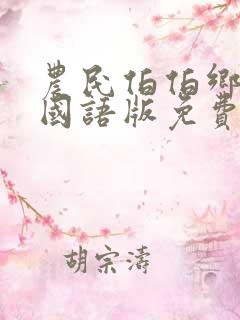 農民伯伯鄉
國語版免費
胡宗濤